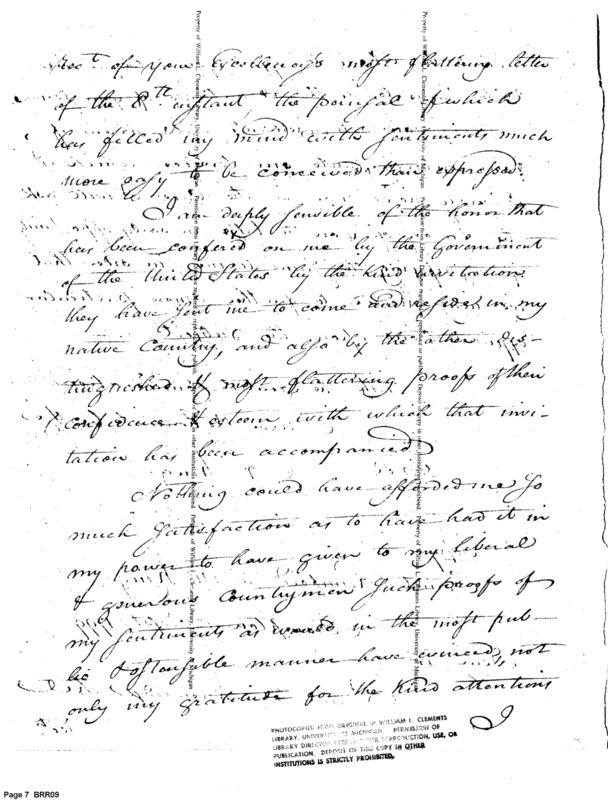 Rec.t of your Excellency's most flattering letter
of the 8th instant, the perusal of which
has filled my mind with sentiments much
more easy to be conceived than expressed.
I am deeply sensible of the honor that
has been confered on me by the Government
of the United States by the kind invitation
they have sent me to come and reside in my
native Country, and also by the other dis-
tinguished & most flattering proofs of their
confidence & esteem with which that invi-
tation has been accompanied
Nothing could have afforded me so
much satisfaction as to have had it in
my power to have given to my liberal
& generous Countrymen such proofs of
my sentiments as would in the most pub-
lic & ostensible manner have evinced, not
only my gratitude for the kind attentions
I
PHOTOCOPIED FROM ORIGINAL IN WILLIAM L. CLEMENTS
LIBRARY, UNIVERSITY OF MICHIGAN. PERMISSION OF
LIBRARY DIRECTOR REQUIRED FOR REPRODUCTION, USE, OR
PUBLICATION. DEPOSIT OF THIS COPY IN OTHER
INSTITUTIONS IS STRICTLY PROHIBITED.
Page 7 BRR09